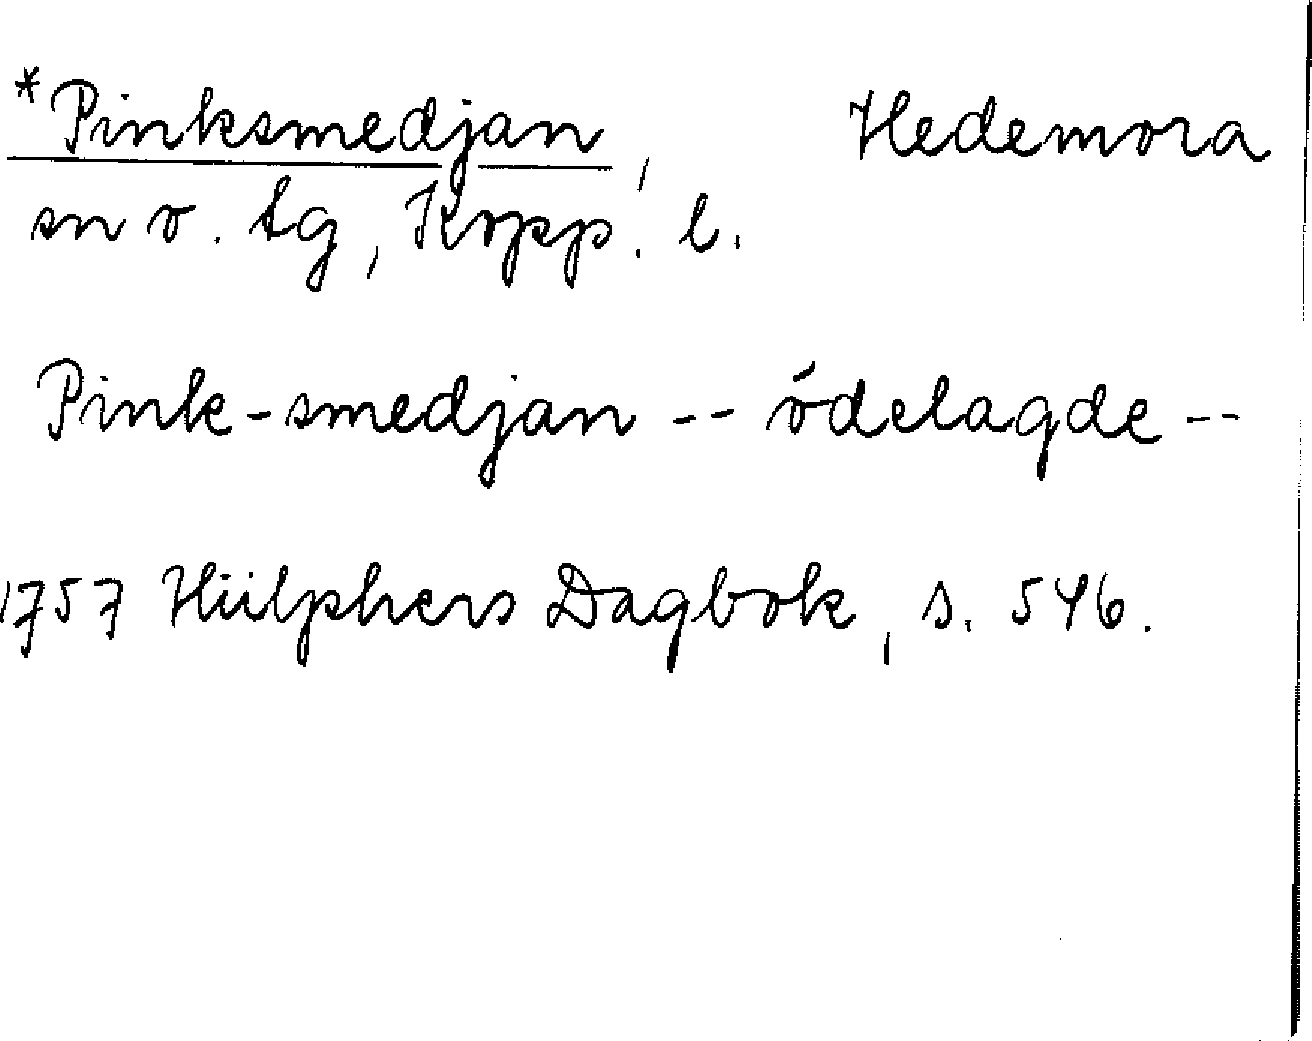 *Pinksmedjan, Hedemora
sn o. tg, Kopp. l.
Pink-smedjan -- ödelagde --
1757 Hülphers Dagbok, s. 546.